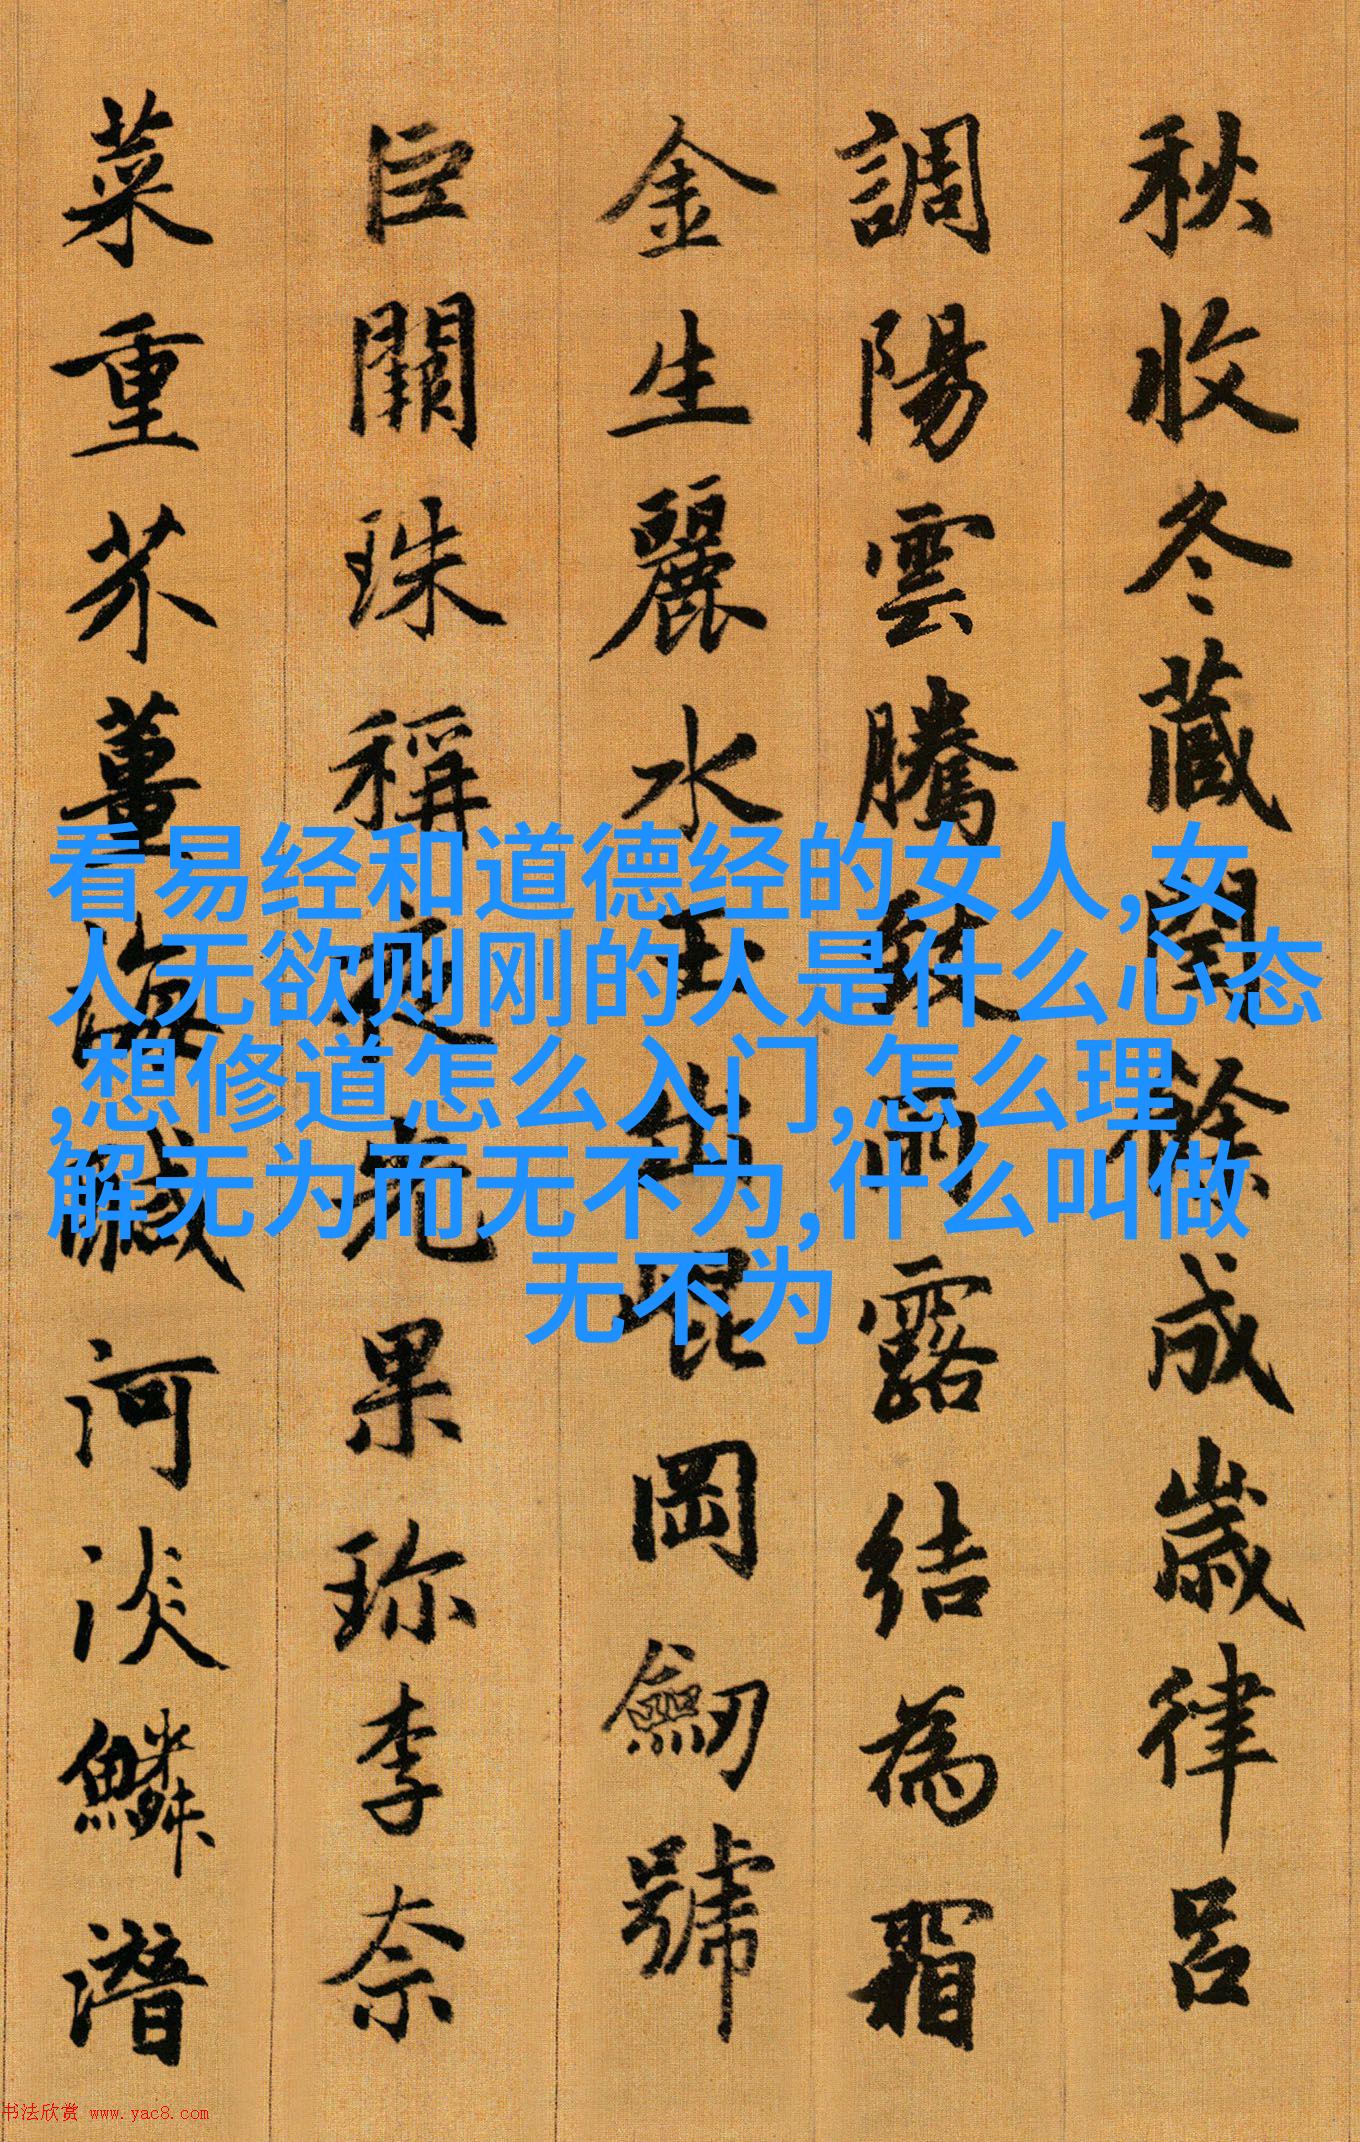 秋收冬藏閏餘成歲律呂
調陽雲騰致雨露結為霜
金生麗水玉出崐岡劒號
巨闕珠稱夜光果珍李奈
菜重芥薑海鹹河淡鱗潛
看易经和道德经的女人,女
人无欲则刚的人是什么心态
,想修道怎么入门,怎么理
解无为而无不为,什么叫做
无不为
书法欣赏 www.yac8.com